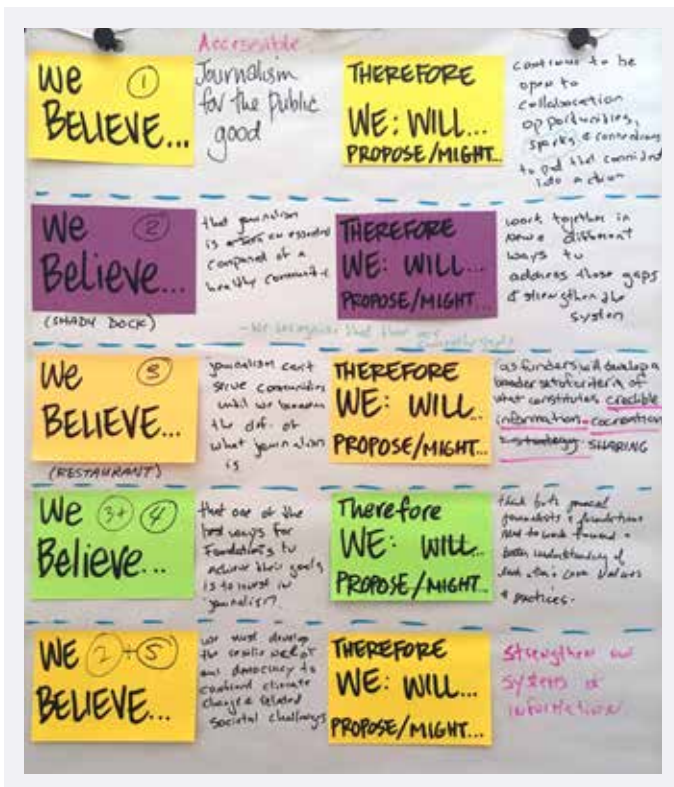 Accessable
We ①
BELIEVE...
Journalism
for the Public
good
THEREFORE
WE: WILL...
PROPOSE/MIGHT...
continue to be
open to
collaboration
opportunities,
sparks, &
to put that
into action
We ②
Believe...
(SHADY DOCK)
that journalism
is an essential
of a
healthy
THEREFORE
WE: WILL...
PROPOSE/MIGHT...
work together in
different
ways to
address those gaps
& strengthen the
system
- We recognize that there are
We ③
BELIEVE...
(RESTAURANT)
journalism can't
serve communities
until we broaden
the def. of
what journalism
is
THEREFORE
WE: WILL...
PROPOSE/MIGHT...
as funders will develop a
broader set of criteria of
what constitutes credible
information
strategy SHARING
We ③+ ④
Believe...
that one of the
best ways for
Foundations to
achieve their goals
is to invest in
journalism
Therefore
WE: WILL...
PROPOSE/MIGHT...
that both
journalists & foundations
need to work toward a
better understanding of
each other's core values
& practices.
WE ②+⑤
BELIEVE...
we must develop
the
our democracy to
confront climate
change & related
societal challenges
THEREFORE
WE: WILL...
PROPOSE/MIGHT...
Strengthen our
systems of
information